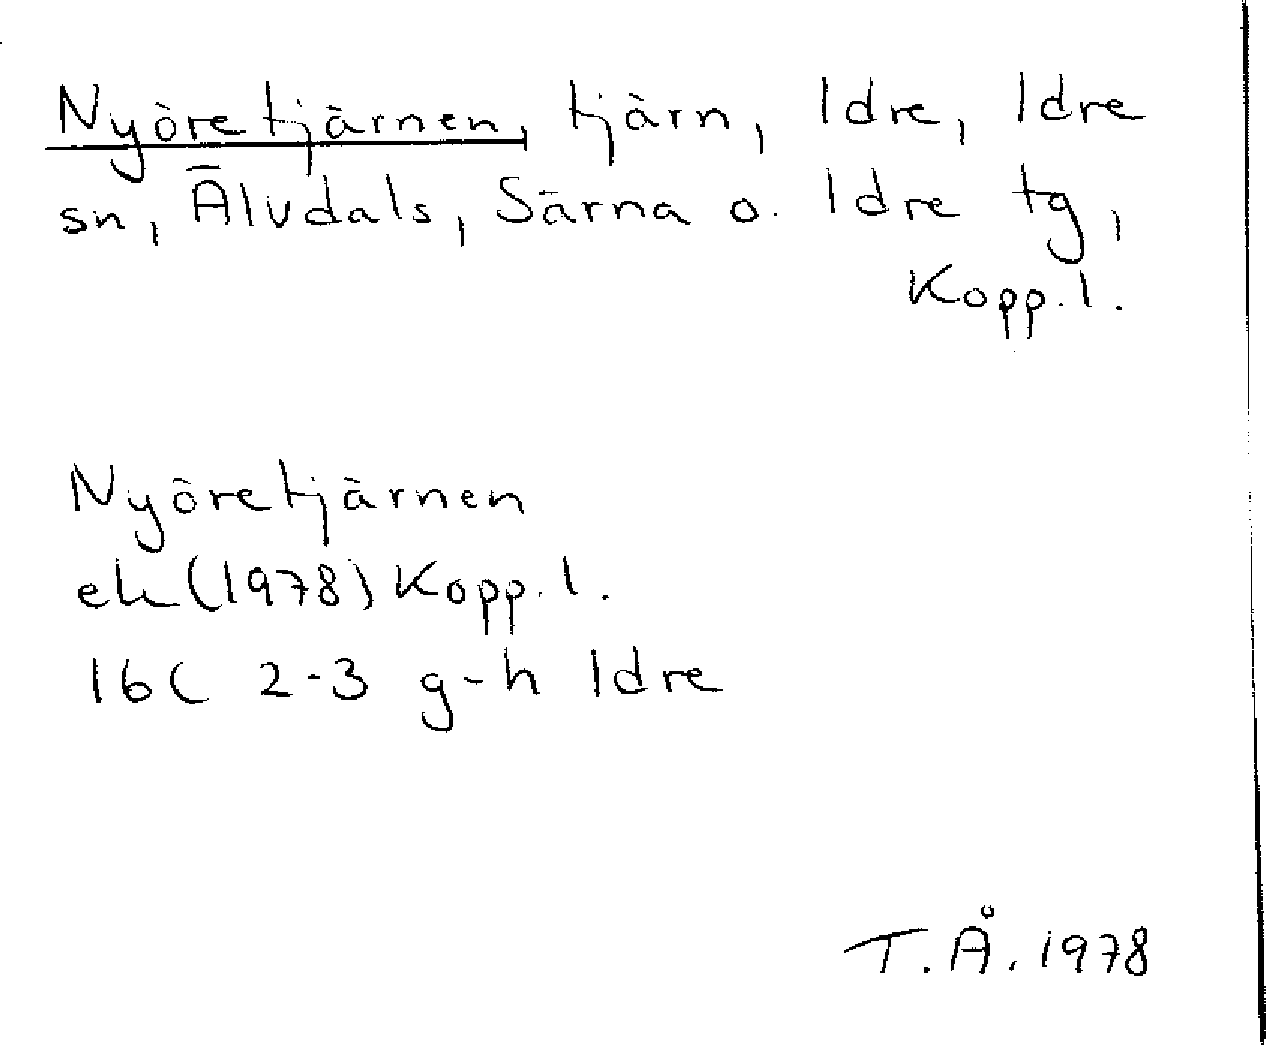 Nyöretjärnen, tjärn, Idre, Idre
sn, Älvdals, Särna o. Idre tg,
Kopp. l.
Nyöretjärnen
ek (1978) Kopp. l.
16C 2-3 g-h Idre
T. Å. 1978